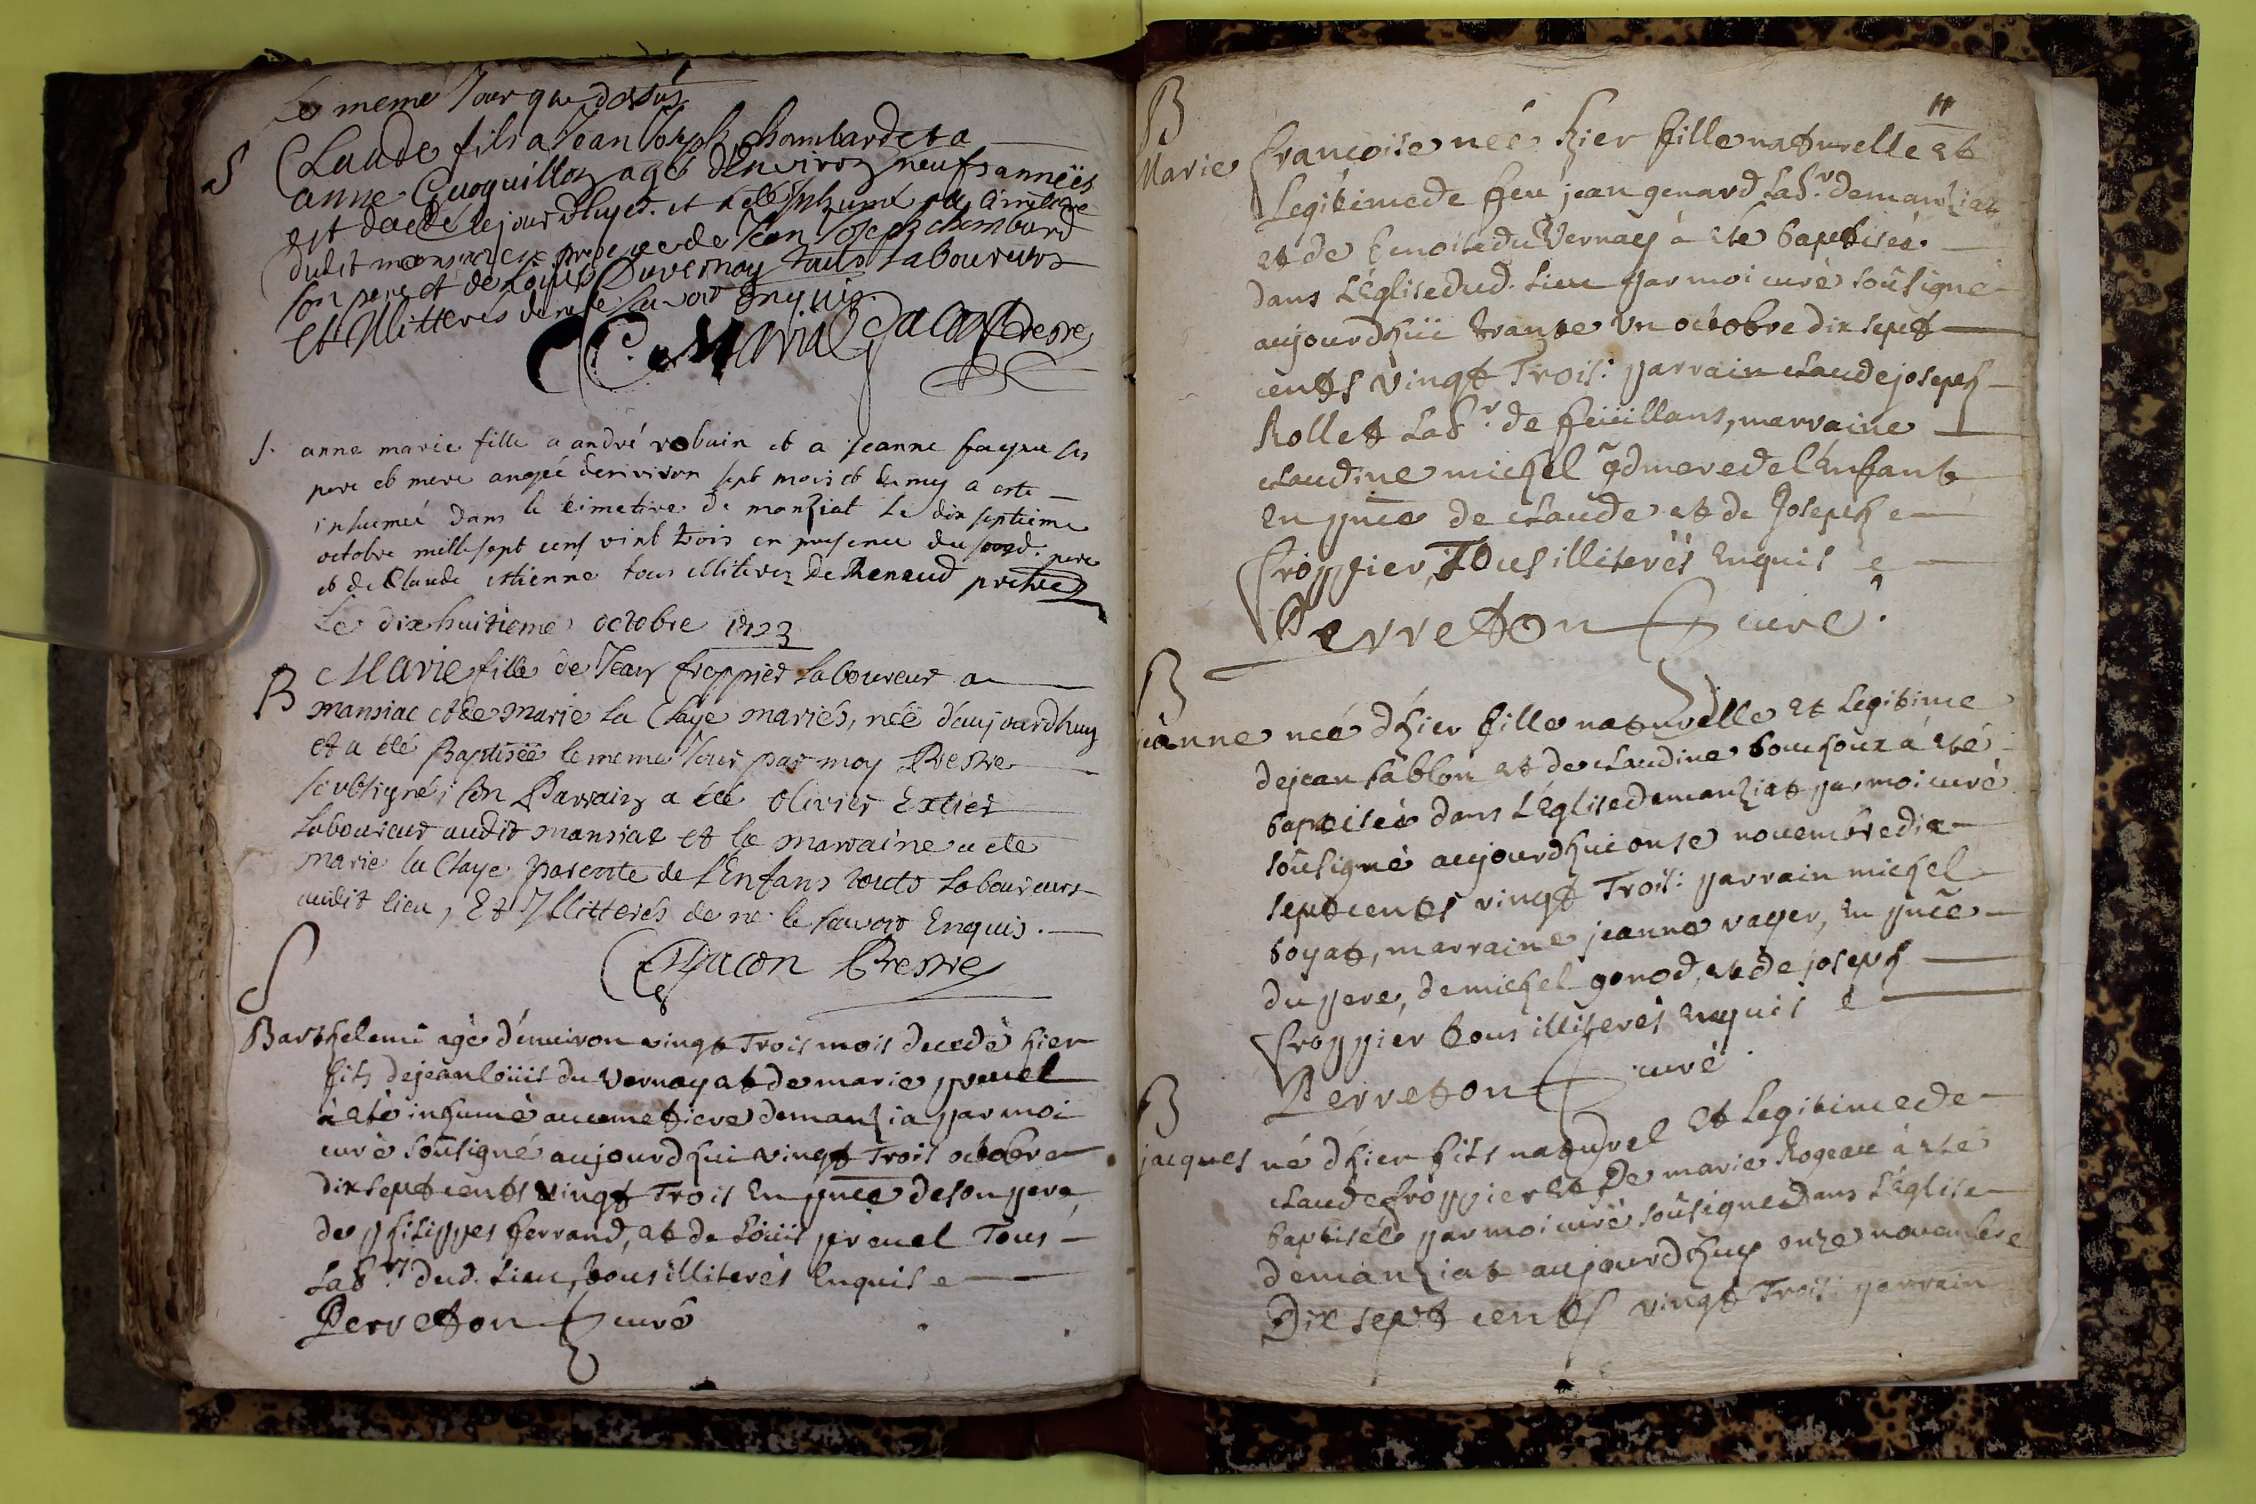 Le meme Jour que dessus
S Claude fils a Jean Joseph Chambard et a
anne Guoguillon agé d'Environ neuf années
est decedé lejourd'huy et a eté Inhumé au Cimetiere
dudit mansiat en presence de Jean Joseph Chambard
son pere et de Loüis Duvernay touts Laboureurs
et Illitterés de ne le savoir Enquis.
Dacon Prestre
S. anne marie fille a andré robuin et a Jeanne ses
pere et mere angée denviron sept mois et demy a esté
inhumeé dans le cimetire de manziat le dix septieme
octobre mille sept cens vint trois en presence du pere
et de Claude etienne tous illiterez De Renaud pretre
Le dixhuitieme octobre 1723
B Marie fille de Jean froppier Laboureur a
mansiac et de marie La Claye mariés, néë d'aujourdhuy
et a eté Baptiséë le meme Jour par moy Prestre
soubsigné, son Parrain a été Olivier Extier
Laboureur audit mansiat et la marraine a ete
marie la Claye parente de l'Enfans touts Laboureurs
audit lieu, Et Illitterés de ne le savoir Enquis.
Dacon Prestre
S
Barthelemi agé d'environ vingt Trois mois decedé hier
fils dejean loüis du Vernay et de marie prevel
à eté inhumé au cemetiere demanzia par moi
curé soûsigné aujourdhui vingt Trois octobre
dix sept cents vingt Trois En pnce deson pere
de philippes ferrand, et de loüis prevel Tous
Labrs dud. lieu, tous illiterés Enquis e
Perreton curé
11
B
Marie françoise née hier fille naturelle et
Legitimede feu jean genard Labr. demanziat
et de Benoite du Vernay à eté baptisée
dans L'Eglise dud. lieu par moi curé soûsigné
aujourdhui trante un octobre dix sept
cents vingt Trois: parrain claude joseph
Rollet Labr. de feüillans, marraine
claudine michel gdmere de l'Enfant
En pnce de claude et de Joseph e
froppier, Tous illiterés Enquis e
Perreton curé.
B
jeanne née d'hier fille naturelle et Legitime
dejean sablon et de claudine bouchoux à eté
baptisée dans L'Eglise demanziat par moi curé
soûsigné aujourdhui onse novembre dix
sept cents vingt Trois: parrain michel
boyat, marraine jeanne vayer, En pnce
du pere, de michel gonod, et de joseph
froppier tous illiterés Enquis e
Perreton curé
B
jacques né d'hier fils naturel et Legitime de
claude froppier et De marie Rogeau à eté
baptisée par moi curé soûsigné dans L'Eglise
demanziat aujourdhuy onze novembre
Dix sept cents vingt Trois: parrain